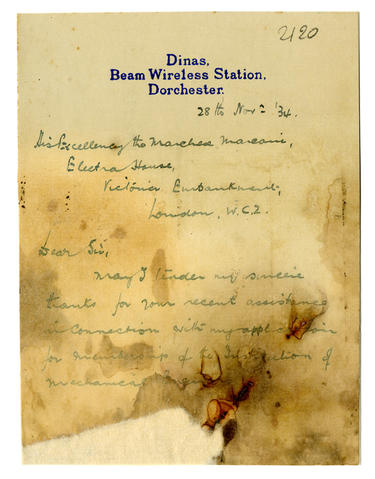 2120
Dinas,
Beam Wireless Station,
Dorchester.
28th Nov. '34.
His Excellency the Marchese Marconi,
Electra House,
Victoria Embankment,
London, W.C.2.
Dear Sir,
May I tender my sincere
thanks for your recent assistance
in connection with my application
for membership of the Institution of